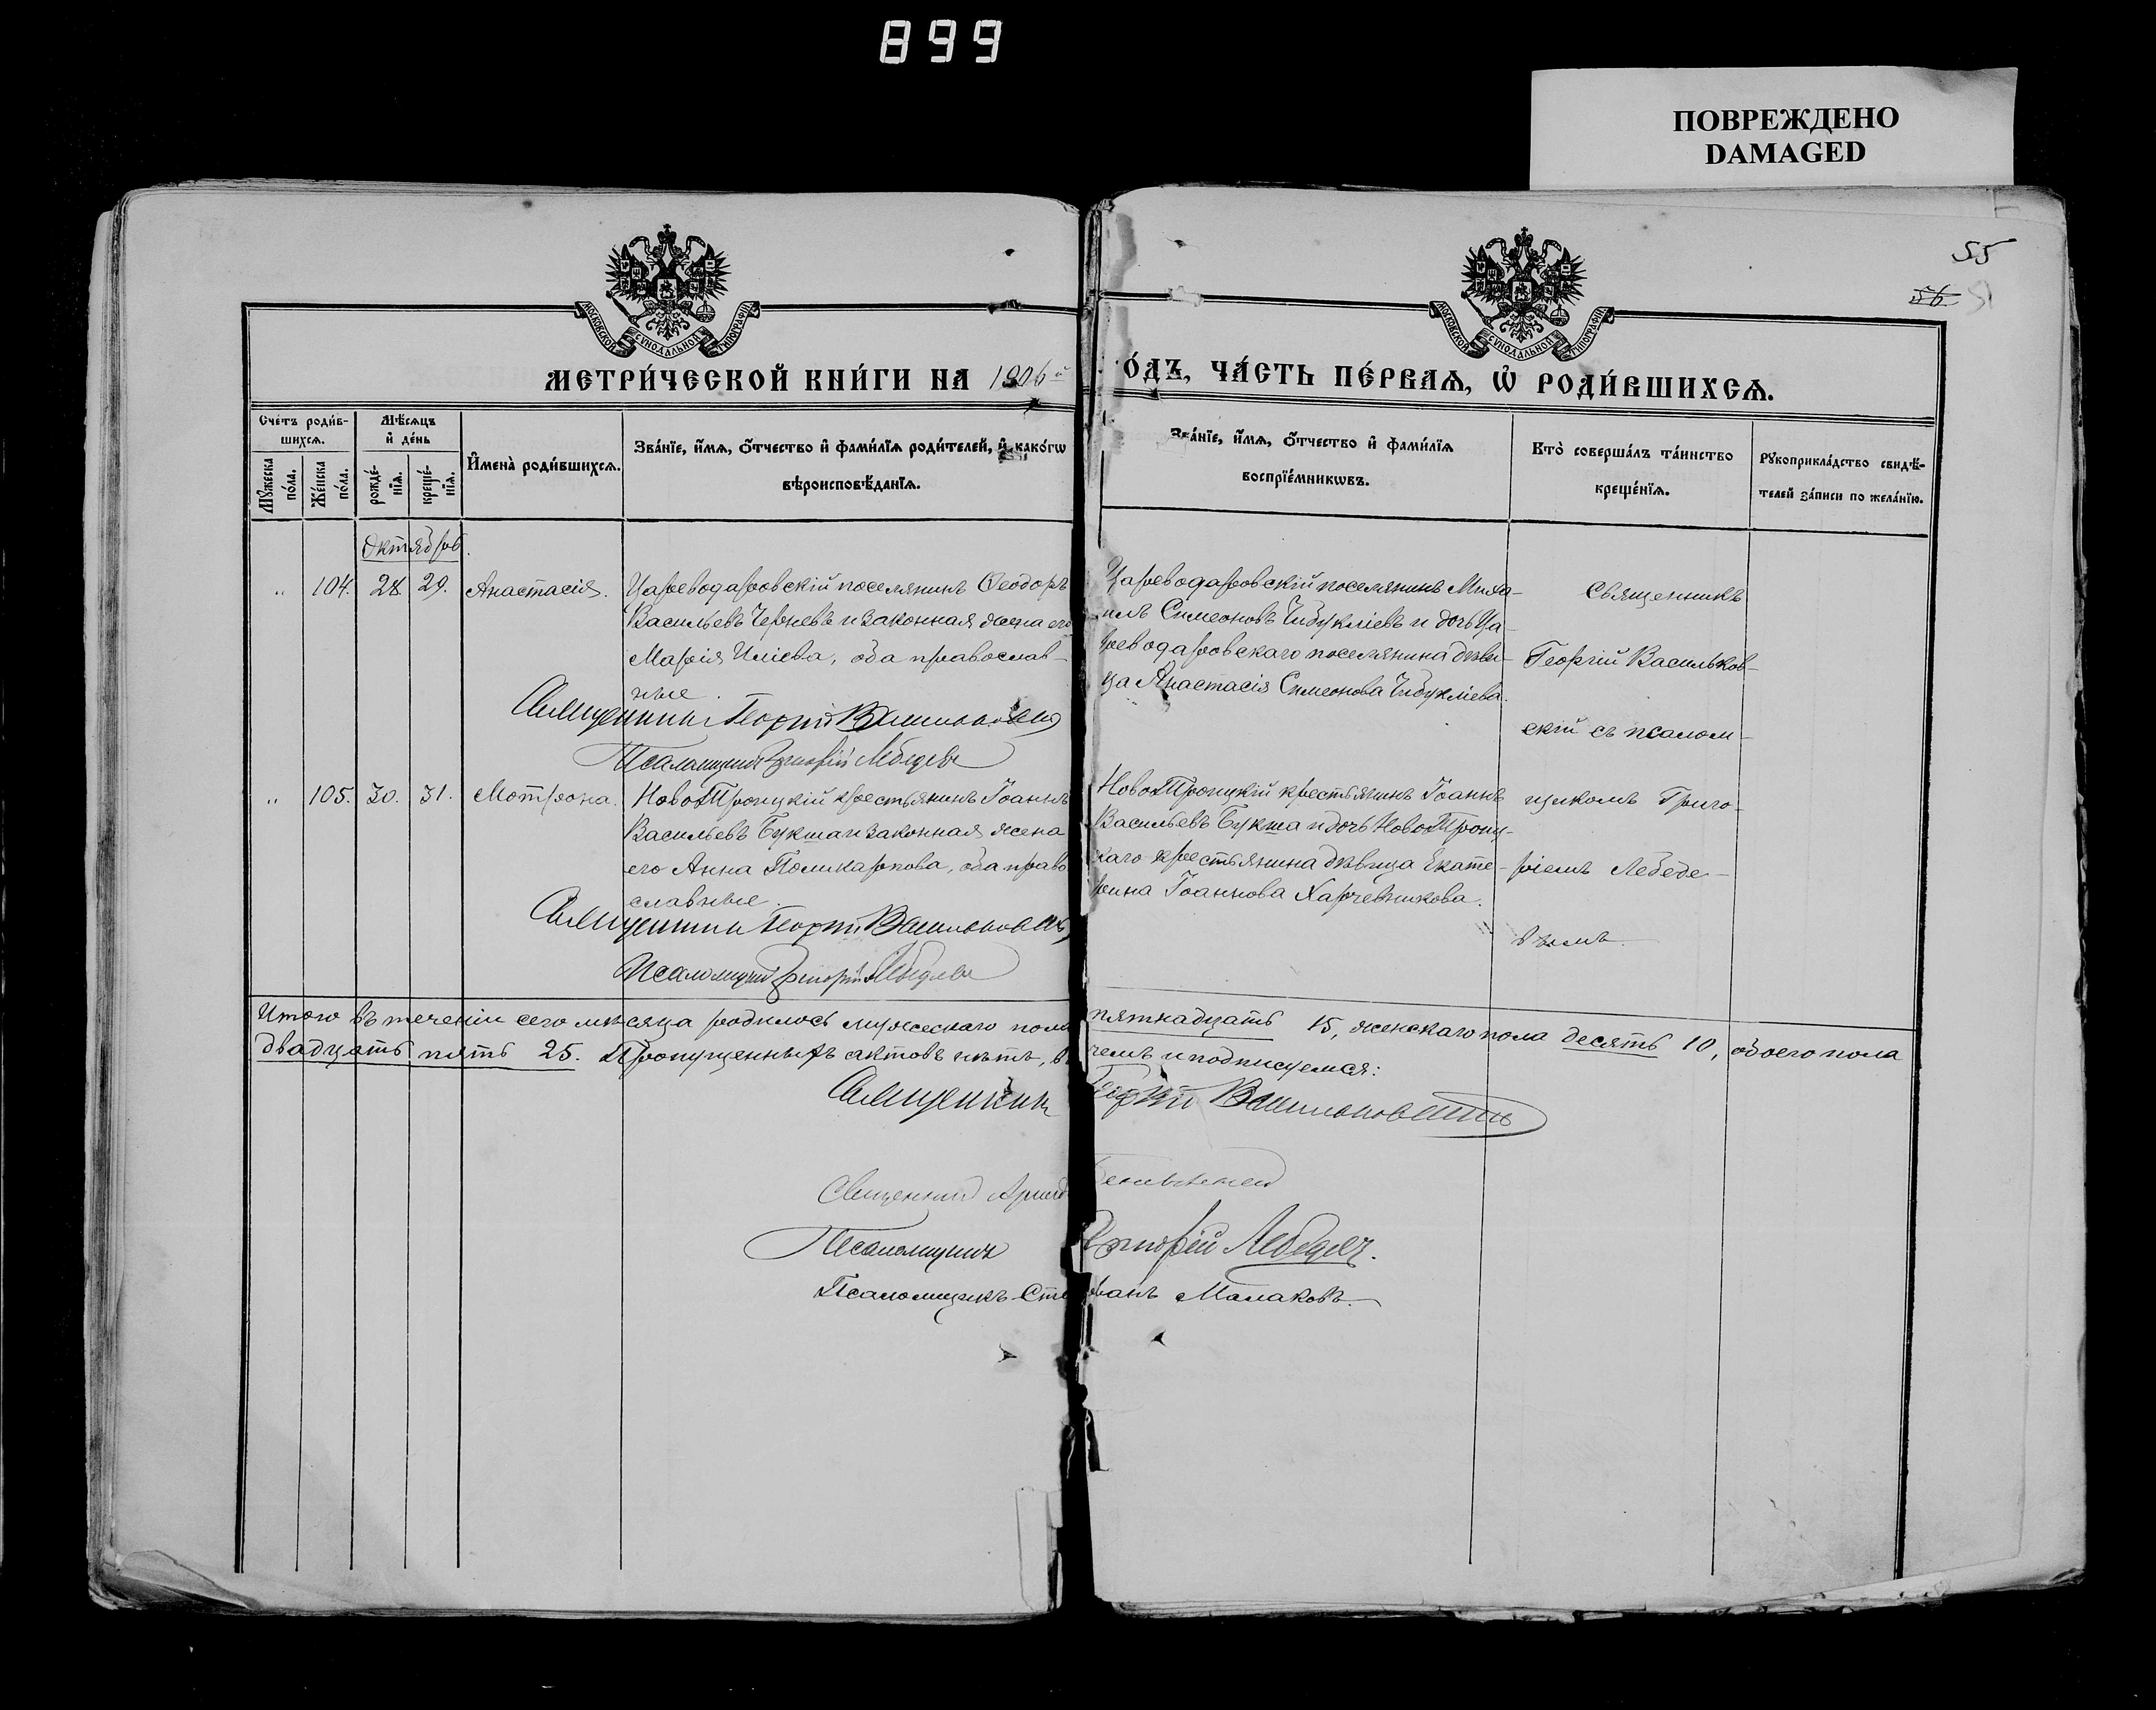 899
ПОВРЕЖДЕНО
DAMAGED
55
56
МОСКОВСКОЙ СѴНОДАЛЬНОЙ ТИПОГРАФІИ
МОСКОВСКОЙ СѴНОДАЛЬНОЙ ТИПОГРАФІИ
МЕТРИ́ЧЕСКОЙ КНИ́ГИ НА 1906й
О́ДЪ, ЧА́СТЬ ПЕ́РВАѦ, Ѡ҆ РОДИ́ВШИХСѦ.
Сче́тъ роди́в-
шихсѧ.
Мꙋ́жеска по́ла.
Же́нска по́ла.
Мѣ́сѧцъ
и҆ де́нь
рожде́-
нїѧ.
креще́-
нїѧ.
И҆мена̀ роди́вшихсѧ.
Зва́нїе, и҆́мѧ, ѻ҆́тчество и҆ фами́лїѧ роди́телей, и҆ како́гѡ
вѣроисповѣ́данїѧ.
Зва́нїе, и҆́мѧ, ѻ҆́тчество и҆ фами́лїѧ
воспрїе́мникѡвъ.
Кто̀ соверша́лъ та́инство
креще́нїѧ.
Рꙋкоприкла́дство свидѣ́-
телей за́писи по жела́нїю.
Октябрь.
" 104. 28 29. Анастасія.
Цареводаровскій поселянинъ Ѳеодоръ
Васильевъ Черневъ и законная жена его
Марія Иліева, оба православ-
ные.
Священникъ Георгій Васильковскій
Псаломщикъ Григорій Лебедевъ
Цареводаровскій поселянинъ Миха-
илъ Симеоновъ Чибукліевъ и дочь Ца-
реводаровскаго поселянина дѣви-
ца Анастасія Симеонова Чибукліева.
" 105. 30. 31. Мотрона.
НовоТроицкій крестьянинъ Іоаннъ
Васильевъ Букша и законная жена
его Анна Поликарпова, оба право
славные.
Священникъ Георгій Васильковскій
Псаломщикъ Григорій Лебедевъ
НовоТроицкій крестьянинъ Іоаннъ
Васильевъ Букша и дочь НовоТроиц-
каго крестьянина дѣвица Екате-
рина Іоаннова Харчевникова.
Священникъ
Георгій Васильков-
скій съ псалом-
щикомъ Григо-
ріемъ Лебеде-
вымъ.
Итого въ теченіи сего мѣсяца родилось мужескаго пола пятнадцать 15, женскаго пола десять 10, обоего пола
двадцать пять 25. Пропущенныхъ актовъ нѣтъ, въ чемъ и подписуемся:
Священникъ Георгій Васильковскій
Священникъ
Псаломщикъ Григорій Лебедевъ.
Псаломщикъ Стефанъ Малаковъ.